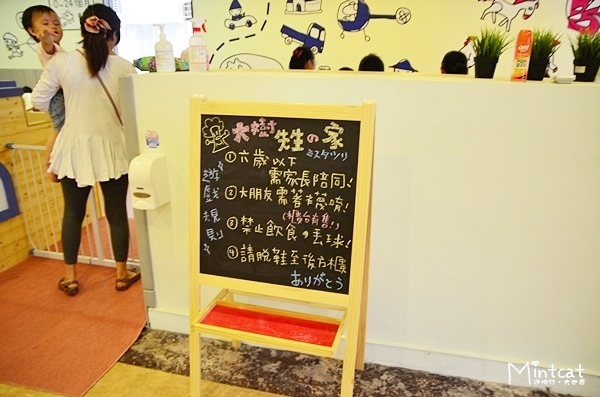 0-24個月
大樹先生の家
ミスタツリ
遊戲規則
①六歲以下
需家長陪同!
②大朋友需著襪唷!
(櫃台有售!)
③禁止飲食の丟球!
④請脫鞋至後方櫃
ありがとう
Mintcat